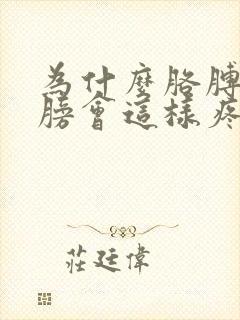 為什麼胳膊
膀會這樣疼
莊廷偉